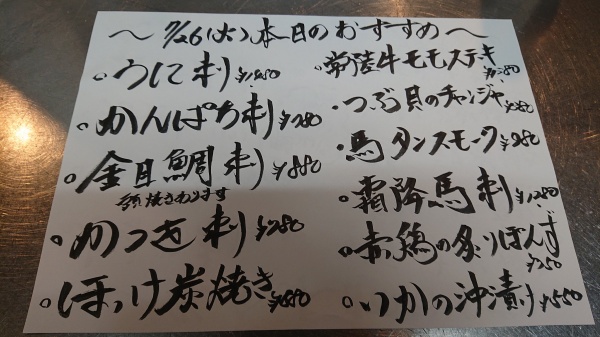 ～7/26(火)本日のおすすめ～
うに刺
かんぱち刺 ¥780
金目鯛刺 ¥880
頭焼きあります
めつき刺 ¥780
ほっけ炭焼き ¥880
常陸牛モモステーキ
つぶ貝のチャンジャ
馬タンスモーク
霜降馬刺
赤鶏の炙りぽんず
いかの沖漬け ¥550